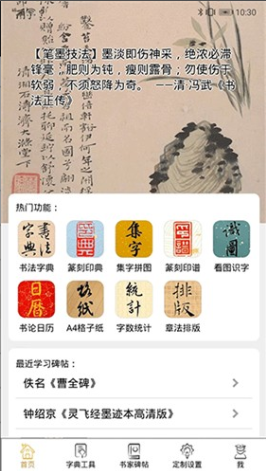 10:30
【笔墨技法】墨淡即伤神采，绝浓必滞
锋毫，肥则为钝，瘦则露骨；勿使伤于
软弱，不须怒降为奇。 ——清 冯武《书
法正传》
热门功能：
書法字典
印典
集字
識圖
书法字典
篆刻印典
集字拼图
篆刻印谱
看图识字
日曆
格纸
統計
排版
书论日历
A4格子纸
字数统计
章法排版
最近学习碑帖：
佚名《曹全碑》
钟绍京《灵飞经墨迹本高清版》
首页
字典工具
书家碑帖
定制设置
我